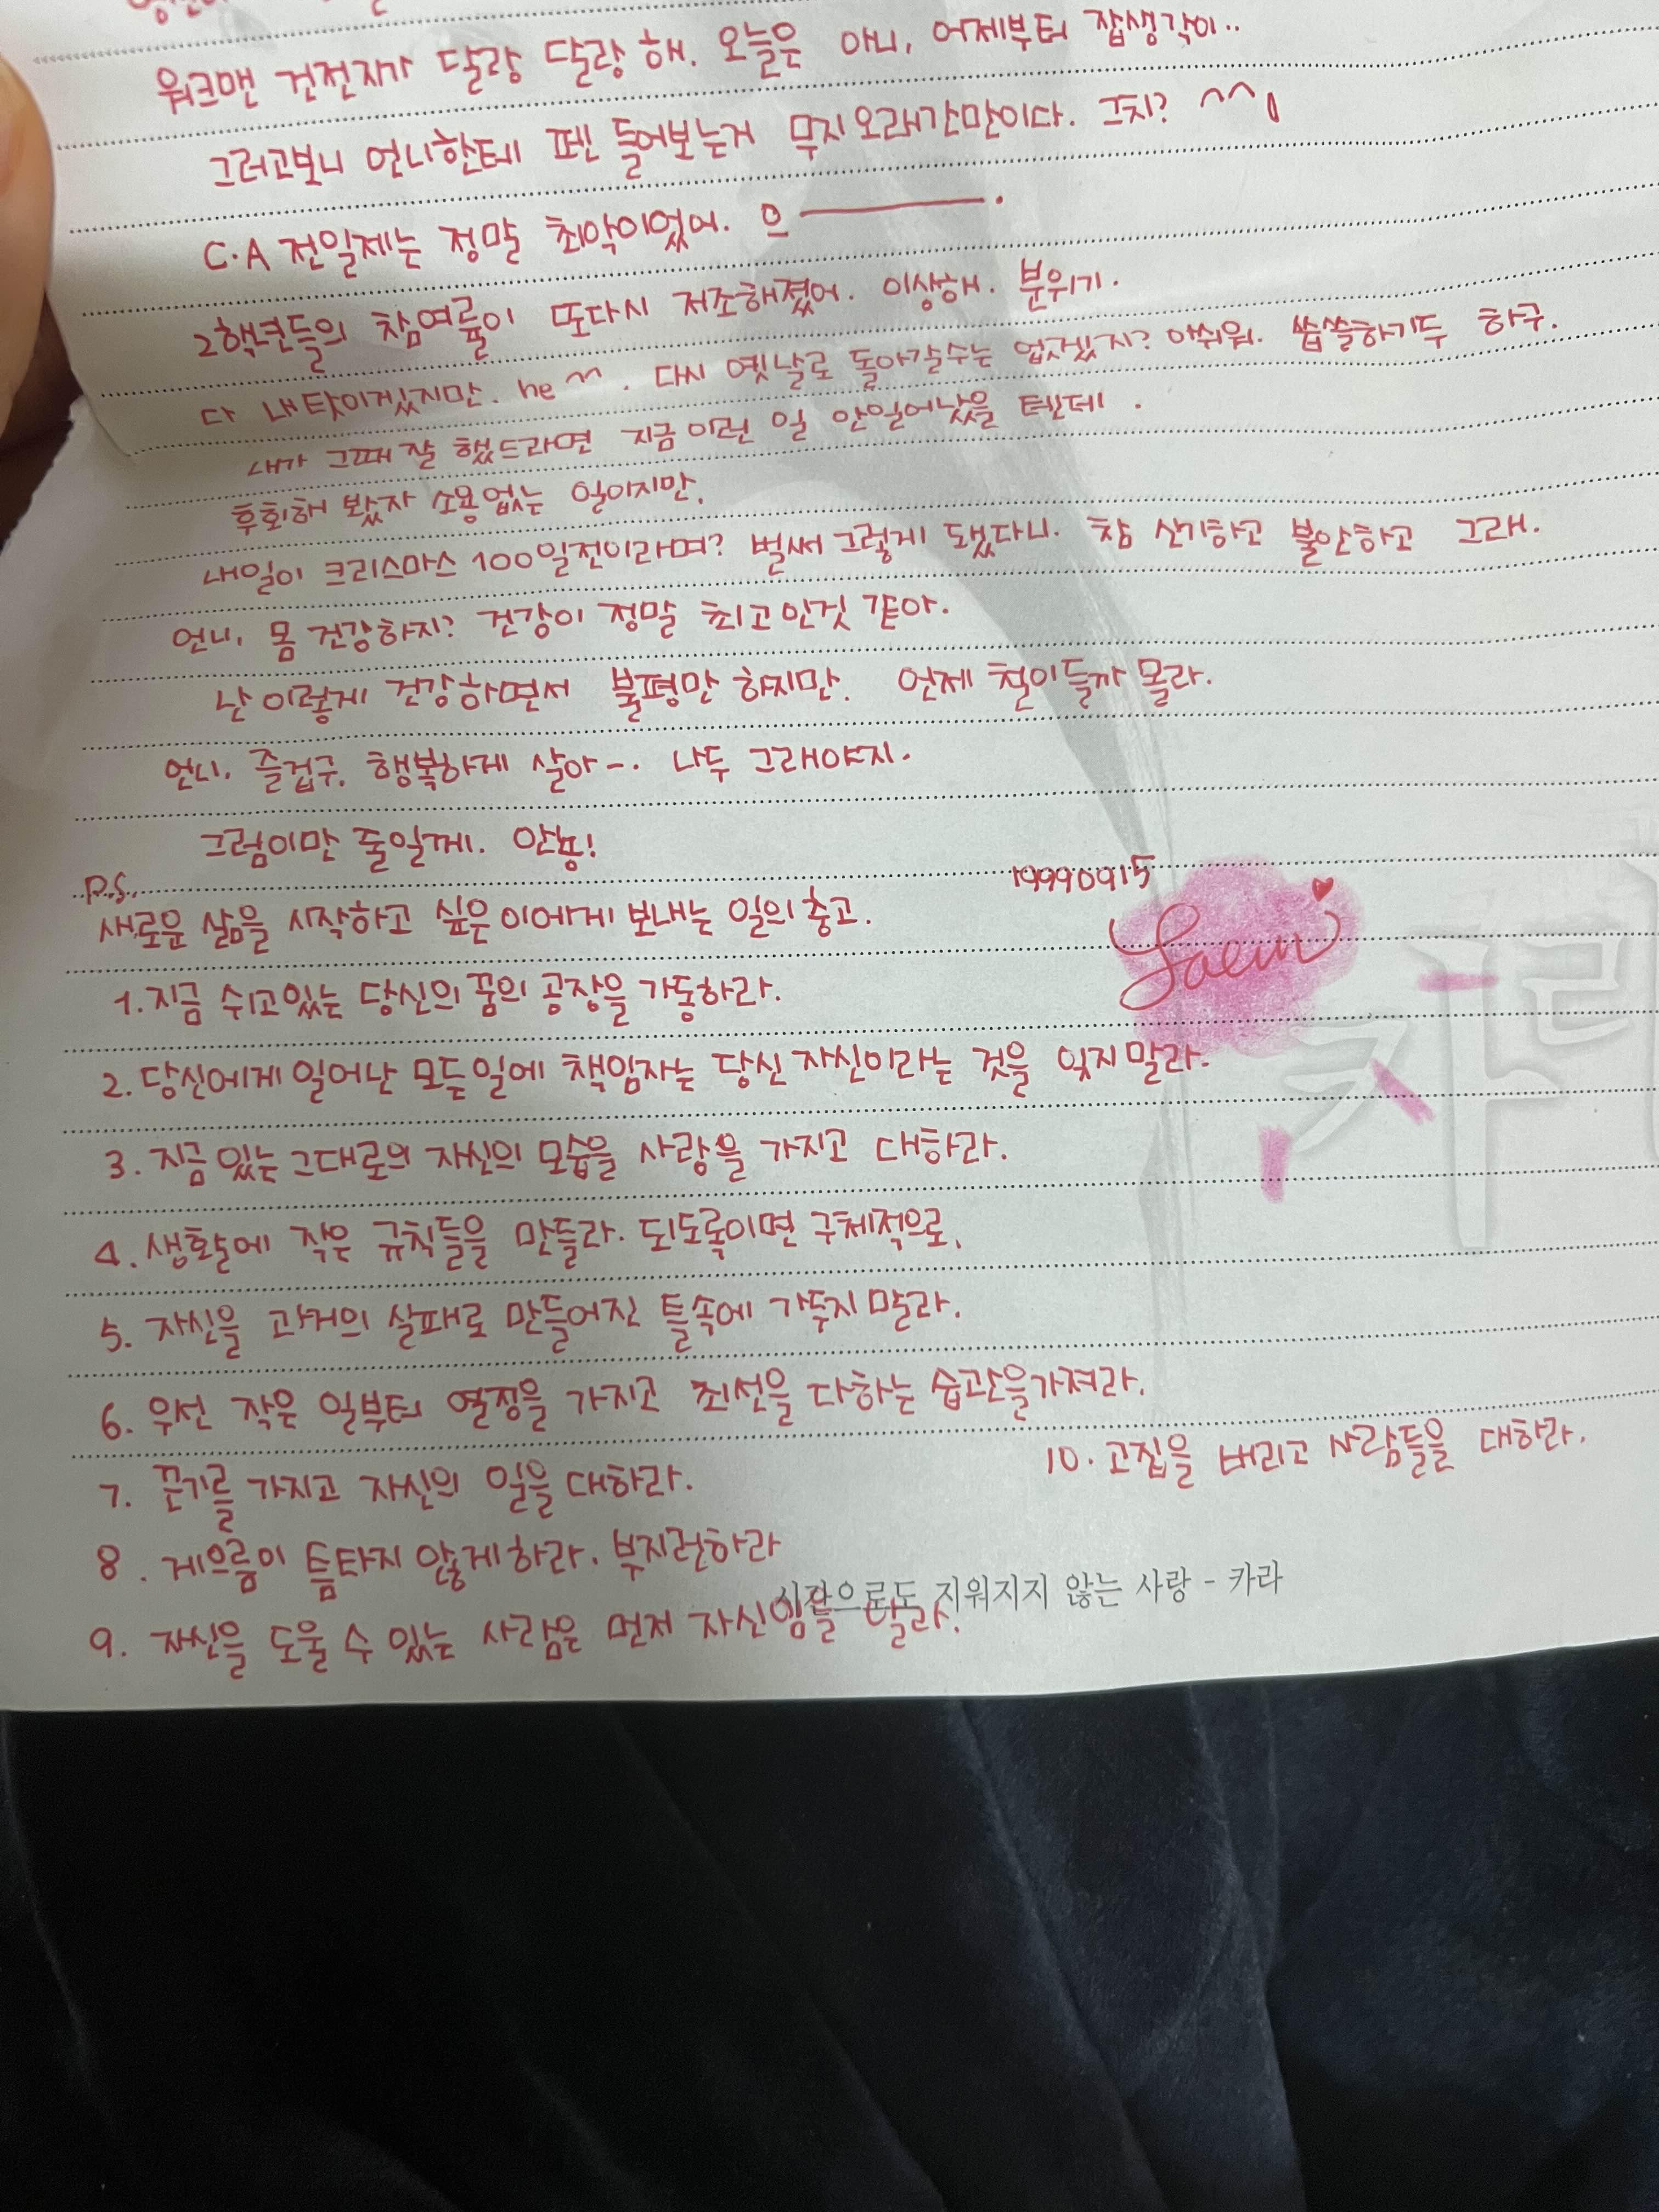 워크맨 건전지가 달랑 달랑 해. 오늘은 아니, 어제부터 잡생각이..
그러고보니 언니한테 펜 들어보는거 무지 오래간만이다. 그치? ^^
C.A 전일제는 정말 최악이었어. 으 ―――.
2학년들의 참여률이 또다시 저조해졌어. 이상해. 분위기.
다 내탓이겠지만. he ^^. 다시 옛날로 돌아갈수는 없겠지? 아쉬워. 씁쓸하기두 하구.
내가 그때 잘 했드라면 지금 이런 일 안일어났을 텐데.
후회해 봤자 소용없는 일이지만.
내일이 크리스마스 100일전이라며? 벌써 그렇게 됐다니. 참 신기하고 불안하고 그래.
언니, 몸 건강하지? 건강이 정말 최고인것 같아.
난 이렇게 건강하면서 불평만 하지만. 언제 철이들까 몰라.
언니. 즐겁구. 행복하게 살아-. 나두 그래야지.
그럼이만 줄일께. 안뇽!
P.S.
19990915
새로운 삶을 시작하고 싶은 이에게 보내는 일의 충고.
1. 지금 쉬고있는 당신의 꿈의 공장을 가동하라.
2. 당신에게 일어난 모든일에 책임자는 당신 자신이라는 것을 잊지말라.
3. 지금 있는 그대로의 자신의 모습을 사랑을 가지고 대하라.
4. 생활에 작은 규칙들을 만들라. 되도록이면 구체적으로.
5. 자신을 과거의 실패로 만들어진 틀속에 가두지 말라.
6. 우선 작은 일부터 열정을 가지고 최선을 다하는 습관을가져라.
7. 끈기를 가지고 자신의 일을 대하라.
10. 고집을 버리고 사람들을 대하라.
8. 게으름이 틈타지 않게하라. 부지런하라
시간으로도 지워지지 않는 사랑 - 카라
9. 자신을 도울 수 있는 사람은 먼저 자신임을 알라.
카라